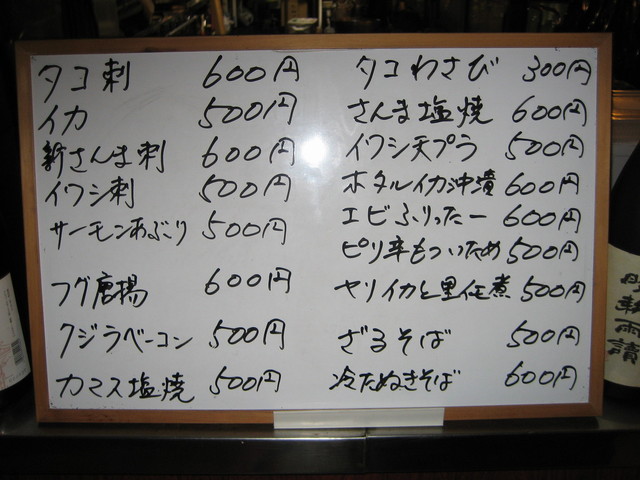 タコ刺 600円
イカ 500円
新さんま刺 600円
イワシ刺 500円
サーモンあぶり 500円
フグ唐揚 600円
クジラベーコン 500円
カマス塩焼 500円
タコわさび 300円
さんま塩焼 600円
イワシ天プラ 500円
ホタルイカ沖漬 600円
エビふりったー 600円
ピリ辛もついため 500円
ヤリイカと里任煮 500円
ざるそば 500円
冷たぬきそば 600円
雨請